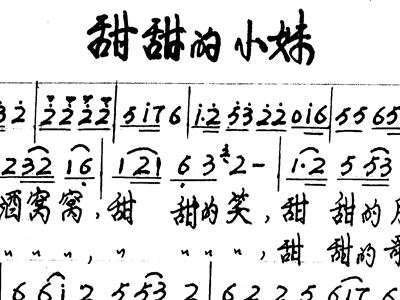 甜甜的小妹
3 2 | 2 2 2 2 | 5 1 7 6 | 1·2 5 3 2 2 0 1 6 | 5 5 6 5
2 3 2 1 6 | 1 2 1 6 3 2 - | 1·2 5 5 3
酒窝窝，甜 甜的笑，甜 甜的
〃 〃 〃，〃 〃 〃 〃，甜 甜的歌
6 6 1 2 5 5 3 2 | 6 2 2 5 6 1 7 6